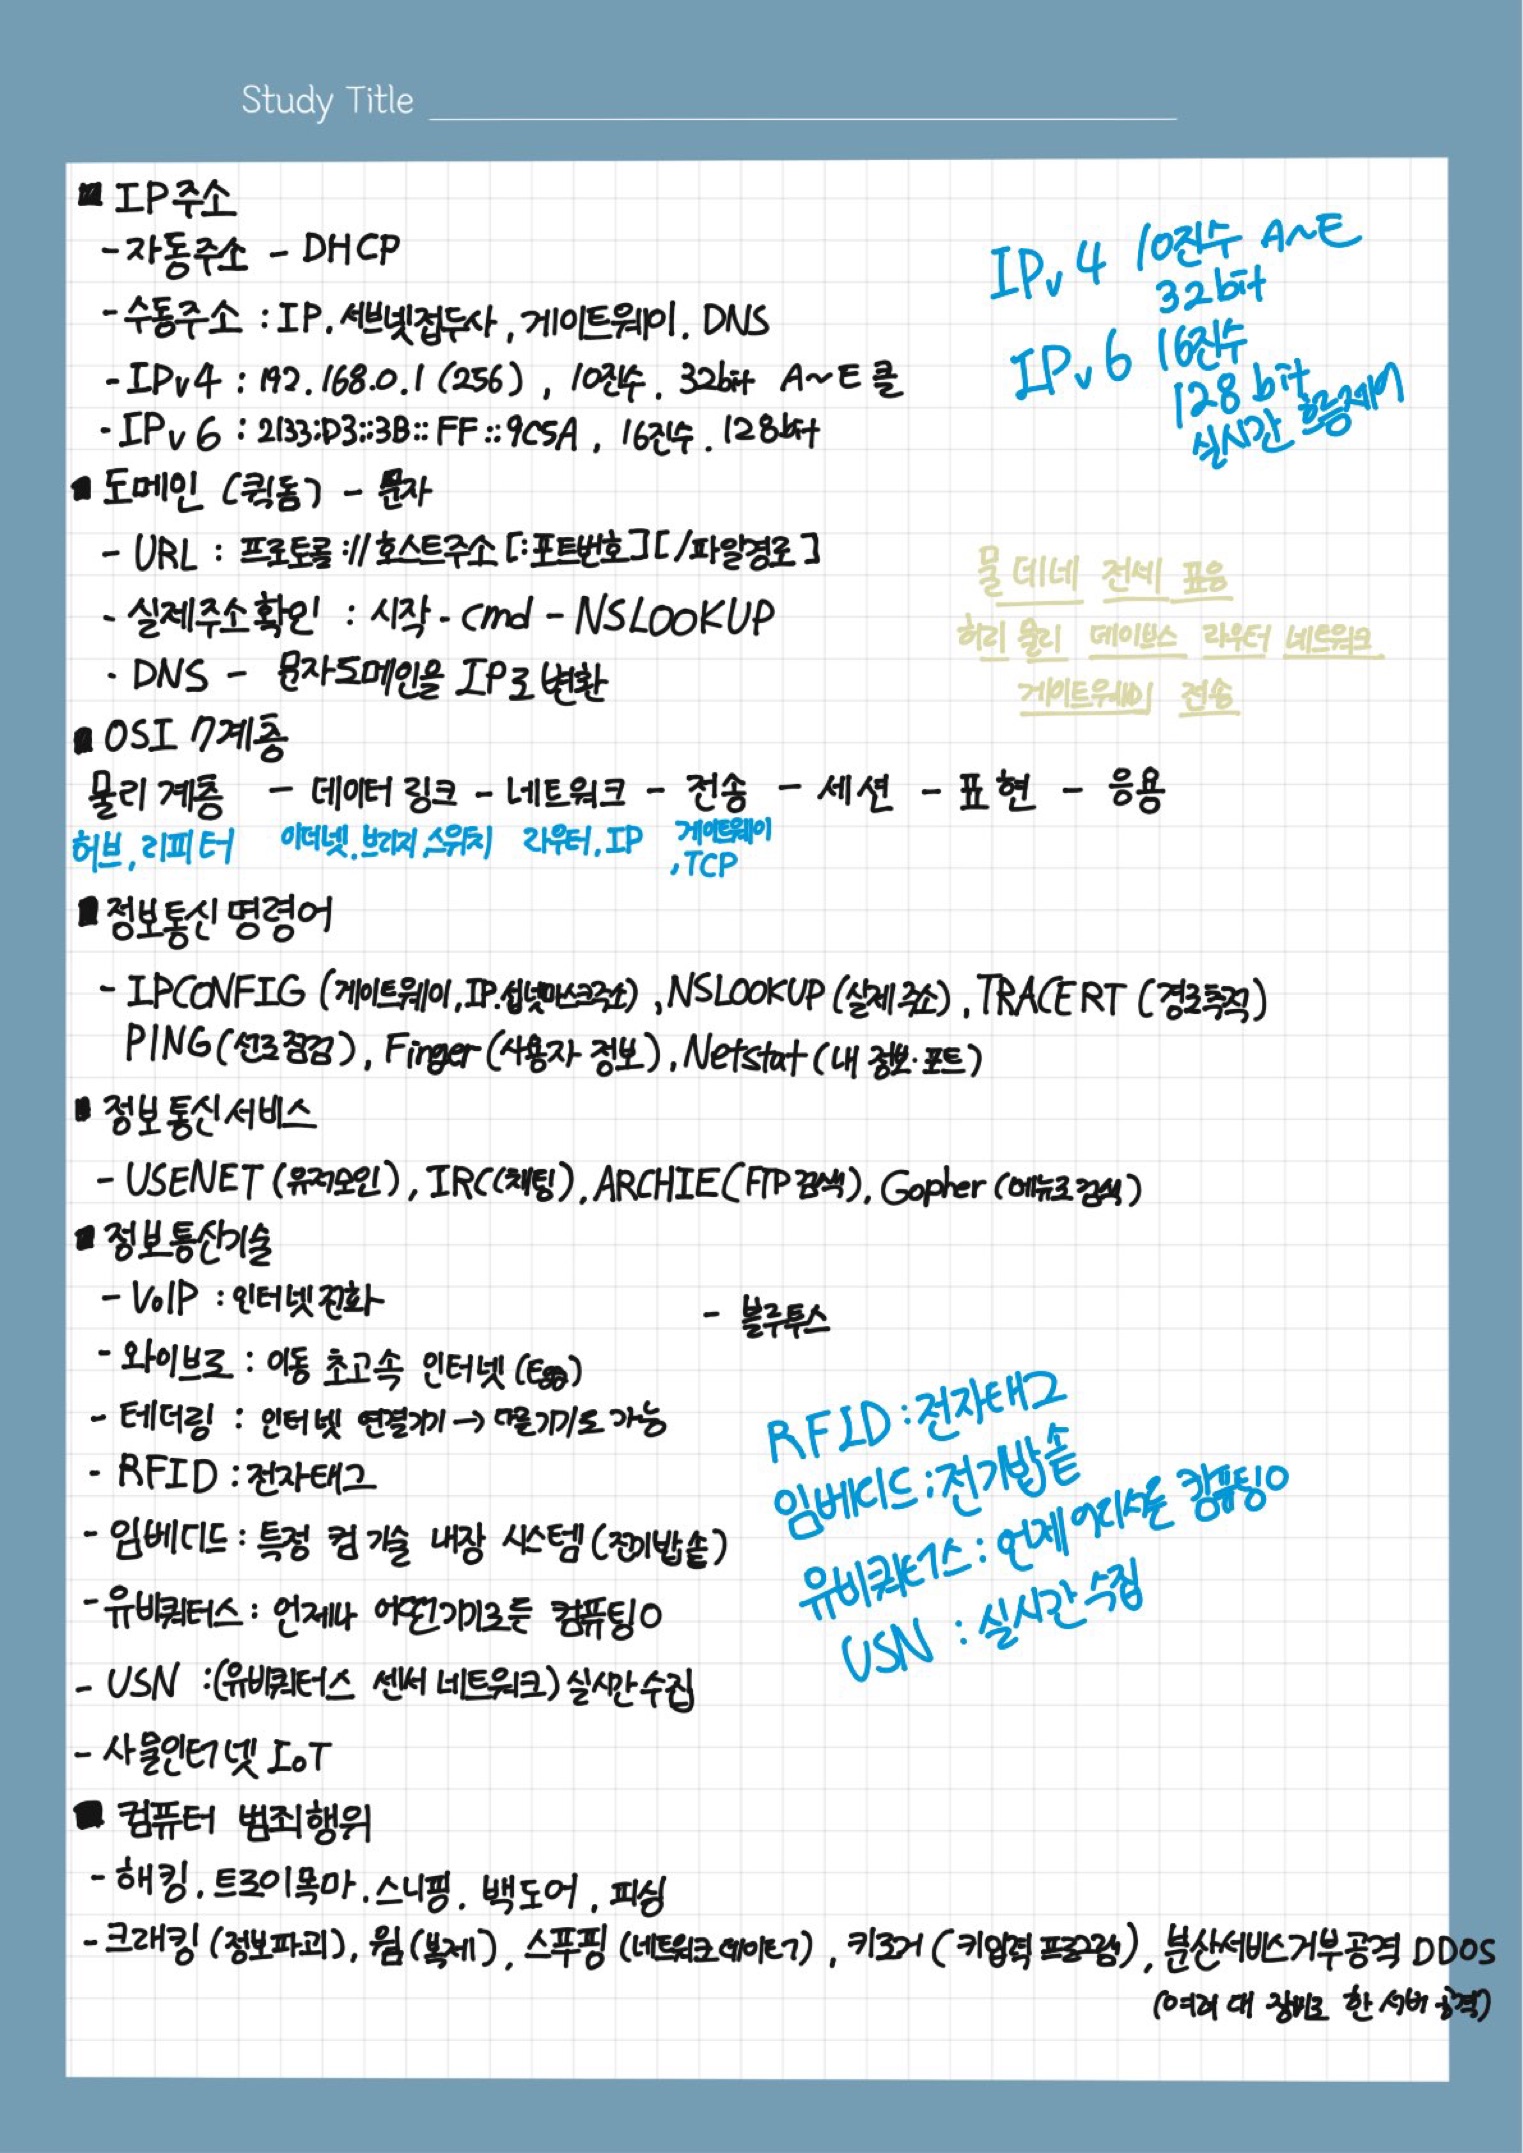 Study Title
■ IP주소
- 자동주소 - DHCP
- 수동주소 : IP. 서브넷접두사, 게이트웨이. DNS
- IPv4 : 192.168.0.1 (256), 10진수. 32bit A~E클
- IPv6 : 2133:D3::3B::FF::9C5A, 16진수. 128bit
IPv4 10진수 A~E
32bit
IPv6 16진수
128bit
실시간 흐름제어
■ 도메인 (퀵돔) - 문자
- URL : 프로토콜://호스트주소[:포트번호][/파일경로]
- 실제주소확인 : 시작 - cmd - NSLOOKUP
- DNS - 문자도메인을 IP로 변환
물 데네 전세 표응
허리 물리 데이브스 라우터 네트워크
게이트웨이 전송
■ OSI 7계층
물리계층 - 데이터 링크 - 네트워크 - 전송 - 세션 - 표현 - 응용
허브, 리피터 이더넷.브리지.스위치 라우터, IP 게이트웨이
, TCP
■ 정보통신 명령어
- IPCONFIG (게이트웨이, IP.섭넷마스크주소), NSLOOKUP (실제주소), TRACERT (경로추적)
PING(선로점검), Finger(사용자 정보), Netstat (내 정보·포트)
■ 정보통신서비스
- USENET (유저모인), IRC(채팅), ARCHIE(FTP검색), Gopher (메뉴로검색)
■ 정보통신기술
- VoIP : 인터넷전화
- 블루투스
- 와이브로 : 이동 초고속 인터넷 (Egg)
- 테더링 : 인터넷 연결기기 → 다른기기도 가능
- RFID : 전자태그
- 임베디드 : 특정 컴 기술 내장 시스템 (전기밥솥)
- 유비쿼터스 : 언제나 어떤기기로든 컴퓨팅O
- USN : (유비쿼터스 센서 네트워크) 실시간수집
- 사물인터넷 IoT
RFID : 전자태그
임베디드 : 전기밥솥
유비쿼터스 : 언제 어디서든 컴퓨팅O
USN : 실시간 수집
■ 컴퓨터 범죄행위
- 해킹. 트로이목마. 스니핑. 백도어. 피싱
- 크래킹 (정보파괴), 웜(복제), 스푸핑 (네트워크 데이터), 키로거 (키입력 프로그램), 분산서비스거부공격 DDOS
(여러 대 장비로 한 서버 공격)